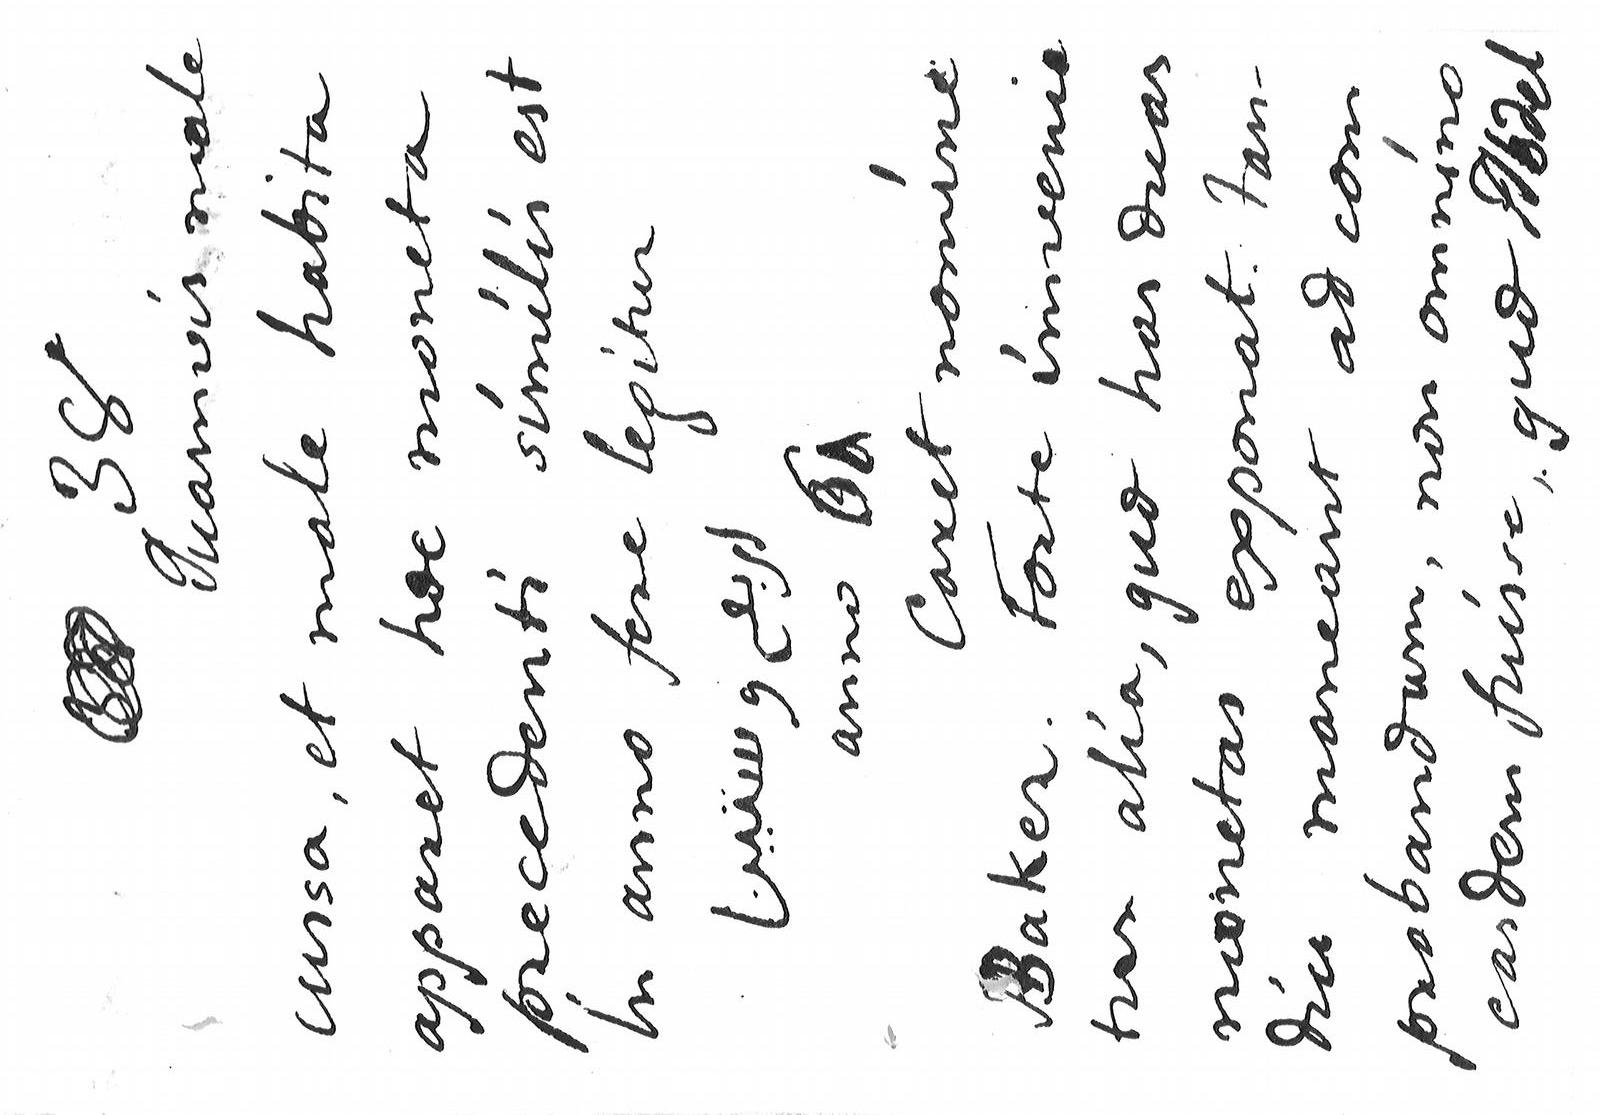 38
Quamvis male
cusa, et male habita
apparet hæc moneta
precedenti similis est
In anno fere legitur
اربع و ستين
anno
Caret nomine
Baker. Forte invenie
tur alia, quæ has duas
monetas exponat. Tan-
diu maneant ad com
probandum, non omnino
easdem fuisse, quæ